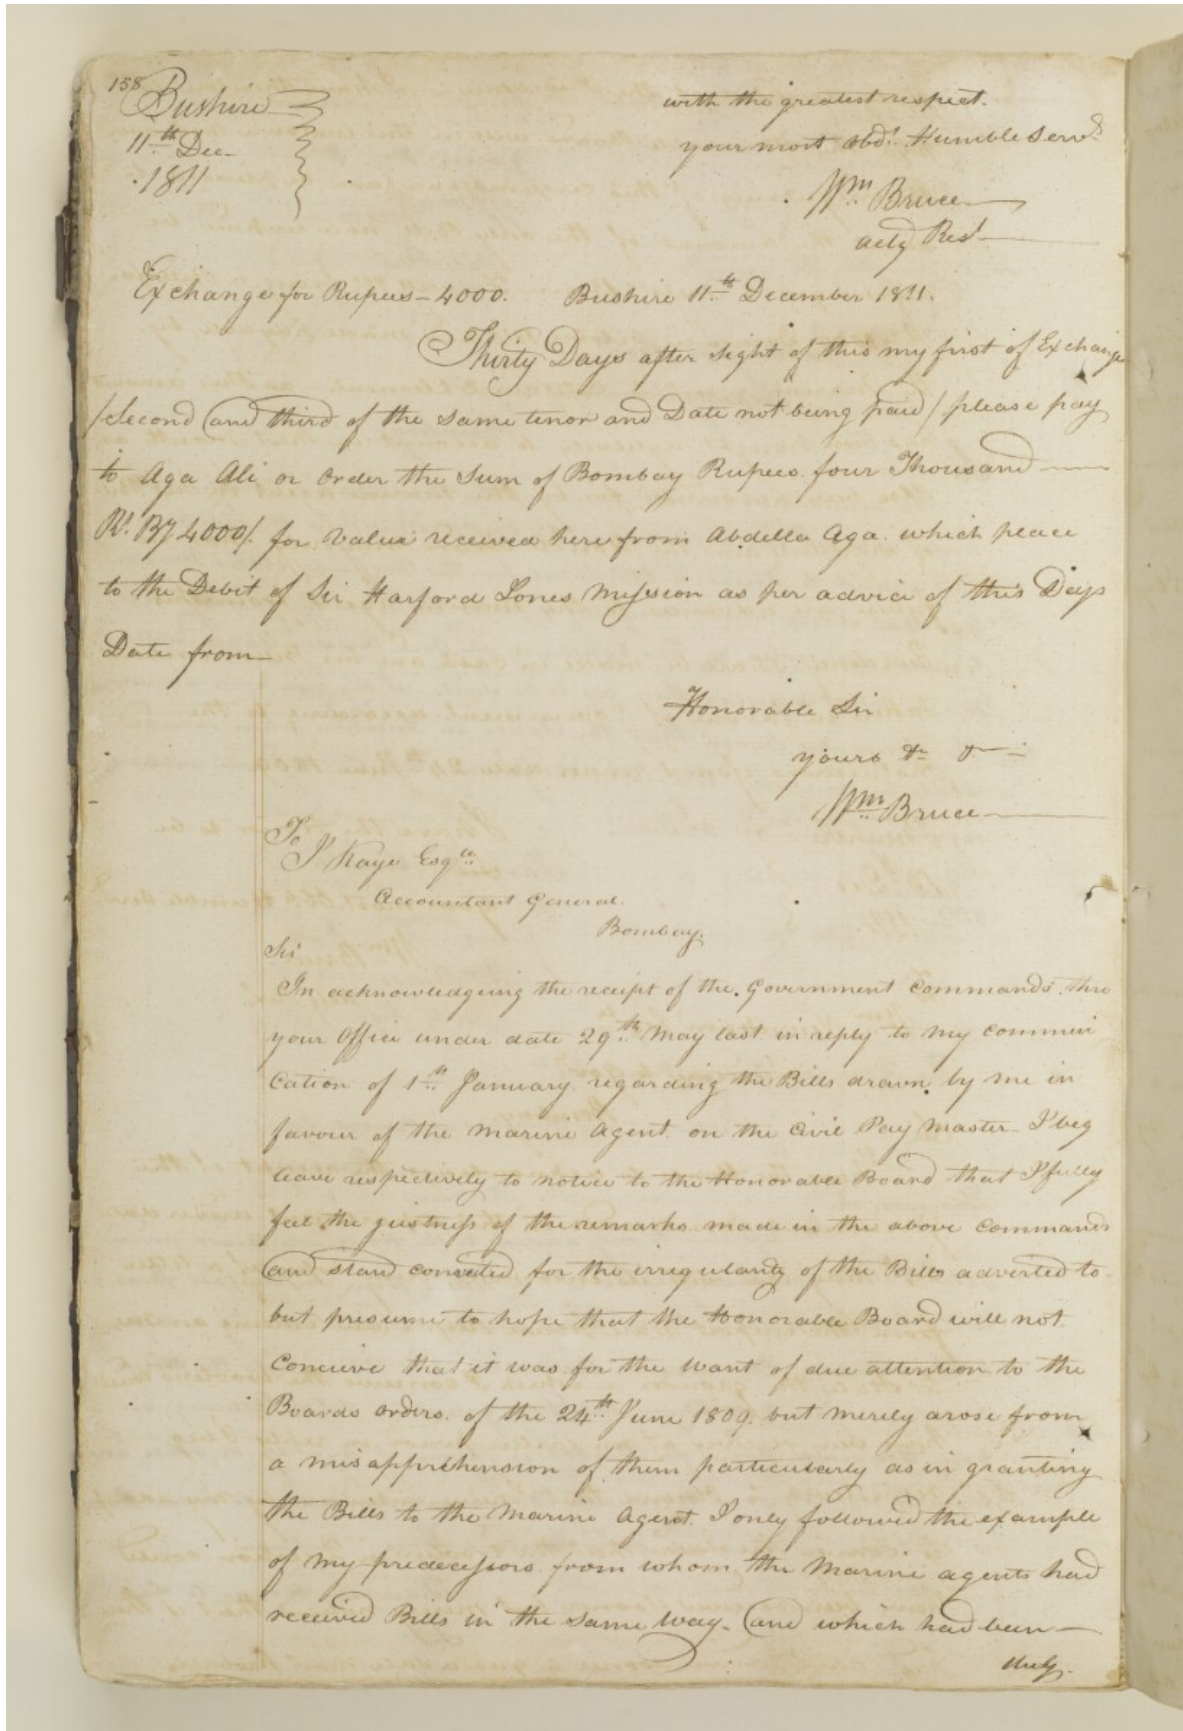 158
Bushire
11th Dec
1811
with the greatest respect.
your most obdt. Humble Servt
Wm Bruce
actg Rest
Exchange for Rupees - 4000. Bushire 11th December 1811.
Thirty Days after sight of this my first of Exchange
/second and third of the same tenor and Date not being paid/ please pay
to Aga Ali or order the Sum of Bombay Rupees four Thousand
Rs. By 4000/. for value received here from Abdella Aga which place
to the Debit of Sir Harford Jones Mission as per advice of this Days
Date from
Honorable Sir
yours &c &c
Wm Bruce
To
J Kaye Esqre
Accountant General.
Bombay.
Sir
In acknowledgeing the receipt of the Government commands thro
your Office under date 29th May last in reply to my communi
cation of 1st January regarding the Bills drawn by me in
favour of the Marine Agent on the Civil Pay Master I beg
leave respectively to notice to the Honorable Board that I fully
feel the justness of the remarks made in the above commands
and stand for the irregularity of the Bills adverted to
but presume to hope that the Honorable Board will not
conceive that it was for the want of due attention to the
Boards orders of the 24th June 1809. but merely arose from
a misapprehension of them particularly as in granting
the Bills to the Marine Agent I only followed the example
of my predecessors from whom the Marine agents had
received Bills in the same way. and which had been
duly